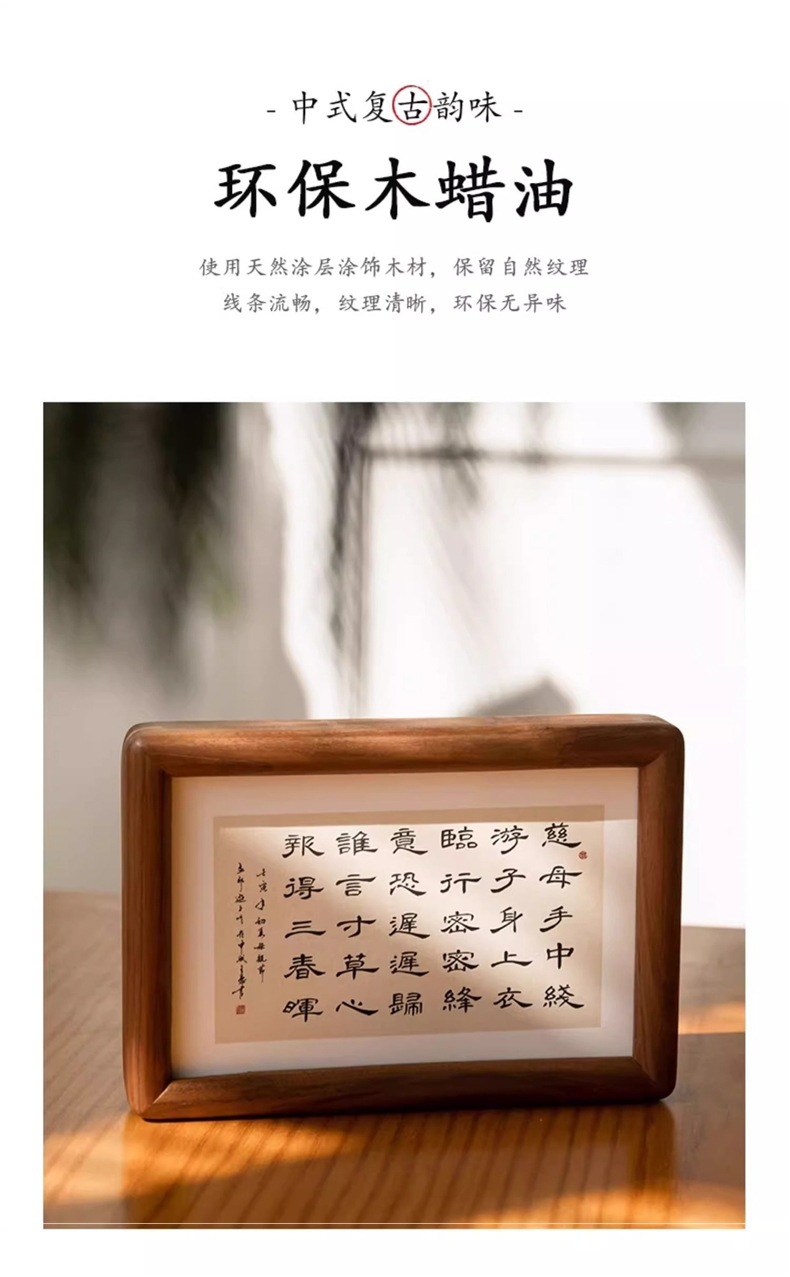 - 中式复古韵味 -
环保木蜡油
使用天然涂层涂饰木材，保留自然纹理
线条流畅，纹理清晰，环保无异味
慈母手中綫
游子身上衣
臨行密密縫
意恐遲遲歸
誰言寸草心
報得三春暉